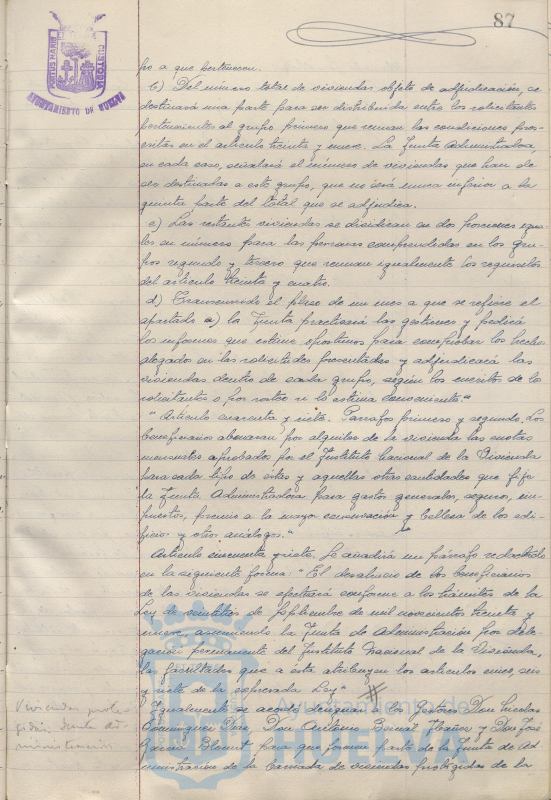 87
PORTUS MARIS CUSTODIA
AYUNTAMIENTO DE HUELVA
po a que pertenecen.
b) Del número total de viviendas objeto de adjudicación, se
destinará una parte para ser distribuida entre los solicitantes
pertenecientes al grupo primero que reunan las condiciones pres-
critas en el artículo treinta y nueve. La Junta Administradora,
en cada caso, señalará el número de viviendas que han de
ser destinadas a este grupo, que no será nunca inferior a la
quinta parte del total que se adjudica.
c) Las restantes viviendas se dividirán en dos porciones igua-
les en número para las personas comprendidas en los gru-
pos segundo y tercero que reunan igualmente los requisitos
del artículo treinta y cuatro.
d) Transcurrido el plazo de un mes a que se refiere el
apartado a) la Junta practicará las gestiones y pedirá
los informes que estime oportunos para comprobar los hechos
alegados en las solicitudes presentadas y adjudicará las
viviendas dentro de cada grupo, según los méritos de los
solicitantes o por sorteo si lo estima conveniente"
"Artículo cuarenta y siete. Párrafos primero y segundo. Los
beneficiarios abonarán por alquiler de la vivienda las cuotas
mensuales aprobadas por el Instituto Nacional de la Vivienda
para cada tipo de estas y aquellas otras cantidades que fije
la Junta Administradora para gastos generales, seguros, im-
puestos, premio a la mayor conservación y belleza de los edi-
ficios y otros análogos."
Artículo cincuenta y siete. Se añadirá un párrafo redactado
en la siguiente forma: "El desahucio de los beneficiarios
de las viviendas se efectuará conforme a los trámites de la
Ley de veintitrés de septiembre de mil novecientos treinta y
nueve, asumiendo la Junta de Administración por dele-
gación permanente del Instituto Nacional de la Vivienda,
las facultades que a esta atribuyen los artículos cinco, seis
y siete de la expresada Ley"
Igualmente se acordó designar a los Gestores Don Nicolas
Dominguez Diaz, Don Antonio Bernal Ibañez y Don José
Garcia para que formen parte de la Junta de Ad
ministración de la barriada de viviendas protegidas de la
Viviendas prote-
gidas, Junta ad-
ministración
Ayuntamiento de
HUELVA